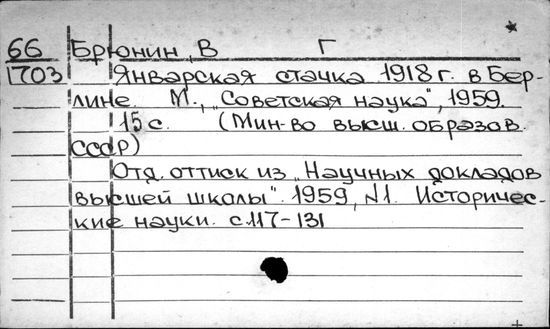 66 Брюнин, В Г
1703 Январская стачка 1918 г. в Бер-
лине. М., „Советская наука", 1959.
15 с. (Мин-во высш. образов.
СССР)
Отд. оттиск из „Научных докладов
высшей школы". 1959, N1. Историчес-
кие науки. с.117-131